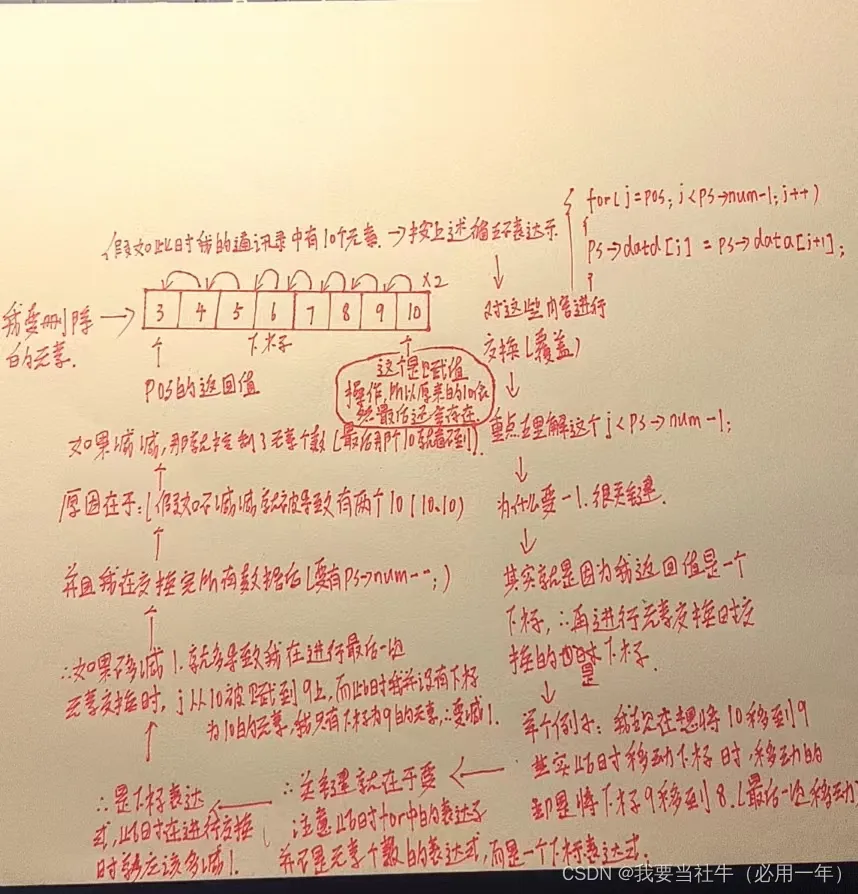 for(j=pos; j<ps->num-1; j++)
{
ps->data[j] = ps->data[j+1];
}
假如此时我的通讯录中有10个元素. →按上述循环表达示
×2
3 4 5 6 7 8 9 10
我要删除
的元素.
下标
pos的返回值
这个是赋值
操作, 所以原来的10依
然最后还会存在.
对这些内容进行
交换(覆盖)
重点在理解这个 j<ps->num-1;
为什么要-1. 很关键.
其实就是因为我返回值是一个
下标, ∴再进行元素交换时交
换的也是下标.
举个例子: 我现在想将10移到9
其实此时移动下标时, 移动的
却是将下标9移到8. (最后一次移动
∴关键就在于要
注意此时for中的表达示
并不是元素个数的表达式, 而是一个下标表达式.
∴是下标表达
式, 此时在进行交换
时就应该多减1.
∴如果不多减1. 就会导致我在进行最后一次
元素交换时, j从10被赋到9上, 而此时我并没有下标
为10的元素, 我只有下标为9的元素, ∴要减1.
并且我在交换完所有数据后(要有ps->num--;)
原因在于: (假如不减减就被导致有两个10 (10.10)
如果减减, 那就控制了元素个数(最后那个10就看不到).
CSDN @我要当社牛（必用一年）